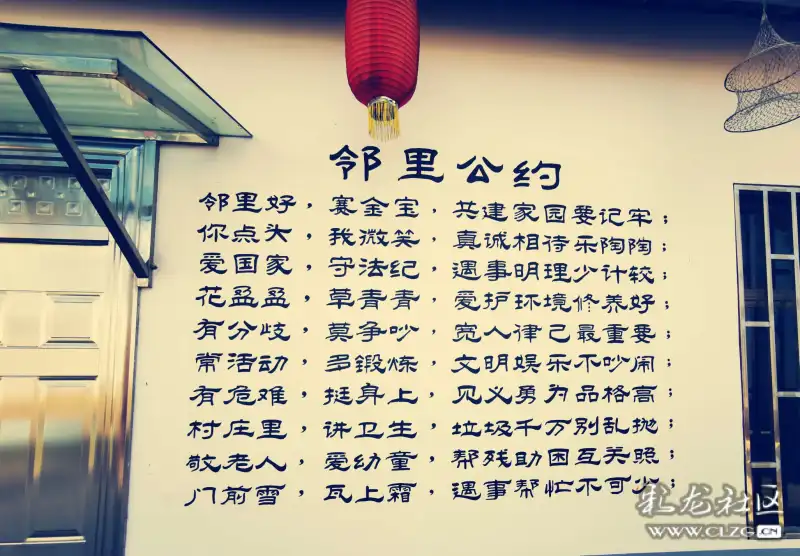 邻里公约
邻里好，赛金宝，共建家园要记牢；
你点头，我微笑，真诚相待乐陶陶；
爱国家，守法纪，遇事明理少计较；
花盈盈，草青青，爱护环境修养好；
有分歧，莫争吵，宽人律己最重要；
常活动，多锻炼，文明娱乐不吵闹；
有危难，挺身上，见义勇为品格高；
村庄里，讲卫生，垃圾千万别乱抛；
敬老人，爱幼童，帮残助困互关照；
门前雪，瓦上霜，遇事帮忙不可少；
彩龙社区
WWW.CLZG.CN